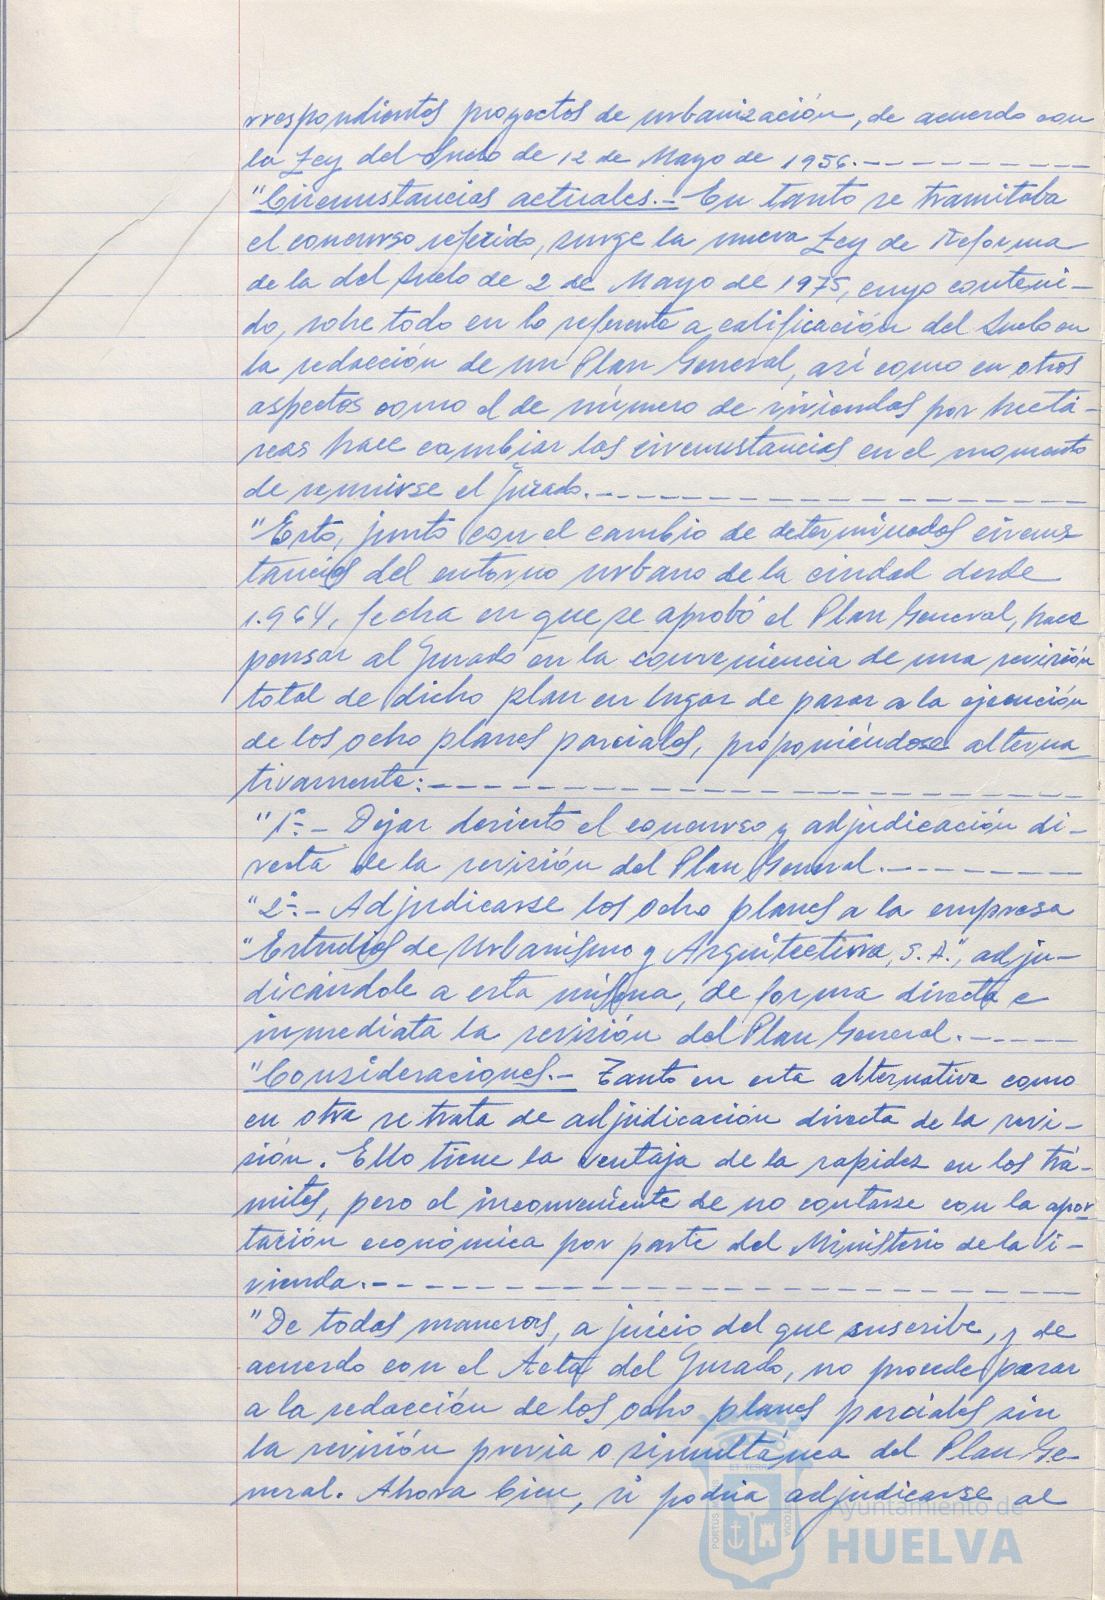 rrespondientes proyectos de urbanización, de acuerdo con
la Ley del Suelo de 12 de Mayo de 1956.-----------
"Circunstancias actuales.- En tanto se tramitaba
el concurso referido, surge la nueva Ley de Reforma
de la del Suelo de 2 de Mayo de 1975, cuyo conteni-
do, sobre todo en lo referente a calificación del Suelo en
la redacción de un Plan General, así como en otros
aspectos como el de número de viviendas por hectá-
reas hace cambiar las circunstancias en el momento
de reunirse el Jurado.-----------------
"Esto, junto con el cambio de determinadas circuns
tancias del entorno urbano de la ciudad desde
1.964, fecha en que se aprobó el Plan General, hace
pensar al Jurado en la conveniencia de una revisión
total de dicho plan en lugar de pasar a la ejecución
de los ocho planes parciales, proponiéndose alterna
tivamente:-----------------------
"1º.- Dejar desierto el concurso y adjudicación di-
recta de la revisión del Plan General.---------
"2º.- Adjudicarse los ocho planes a la empresa
"Estudios de Urbanismo y Arquitectura, S.A.", adju-
dicándole a esta misma, de forma directa e
inmediata la revisión del Plan General.------
"Consideraciones.- Tanto en esta alternativa como
en otra se trata de adjudicación directa de la revi-
sión. Ello tiene la ventaja de la rapidez en los trá-
mites, pero el inconveniente de no contarse con la apor
tación económica por parte del Ministerio de la Vi-
vienda.-------------------------
"De todas maneras, a juicio del que suscribe, y de
acuerdo con el Acta del Jurado, no procede pasar
a la redacción de los ocho planes parciales sin
la revisión previa o simultánea del Plan Ge-
neral. Ahora bien, si podría adjudicarse al
Ayuntamiento de
HUELVA